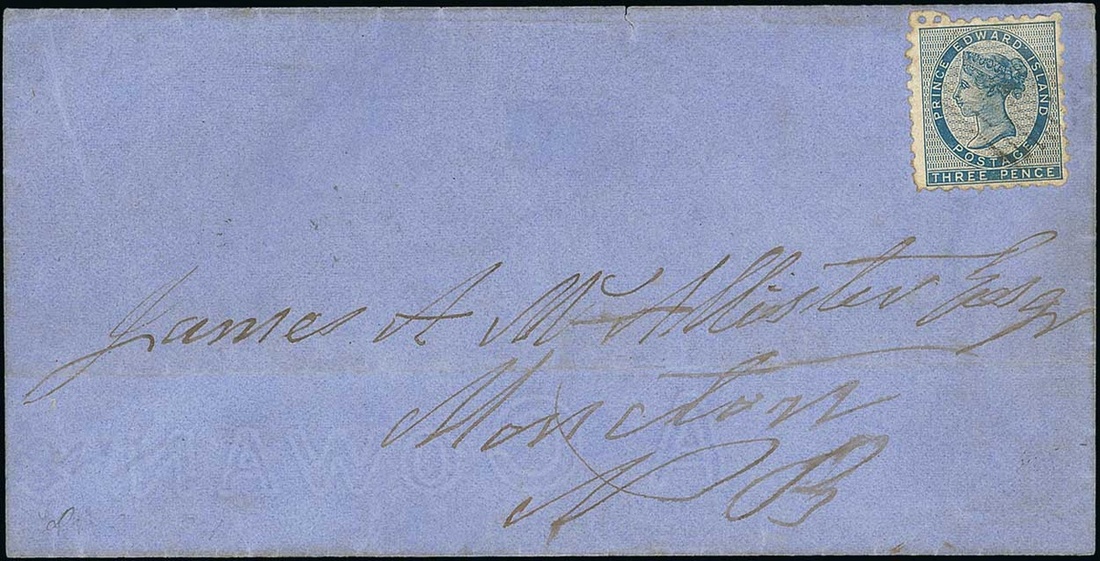 PRINCE EDWARD ISLAND
POSTAGE
THREE PENCE
James A McAllister Esqr
Moncton
N B